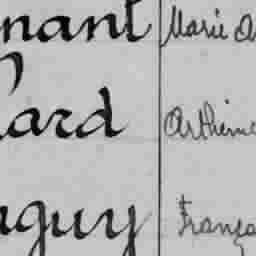 nant Marie A
ard Arthém
guy França